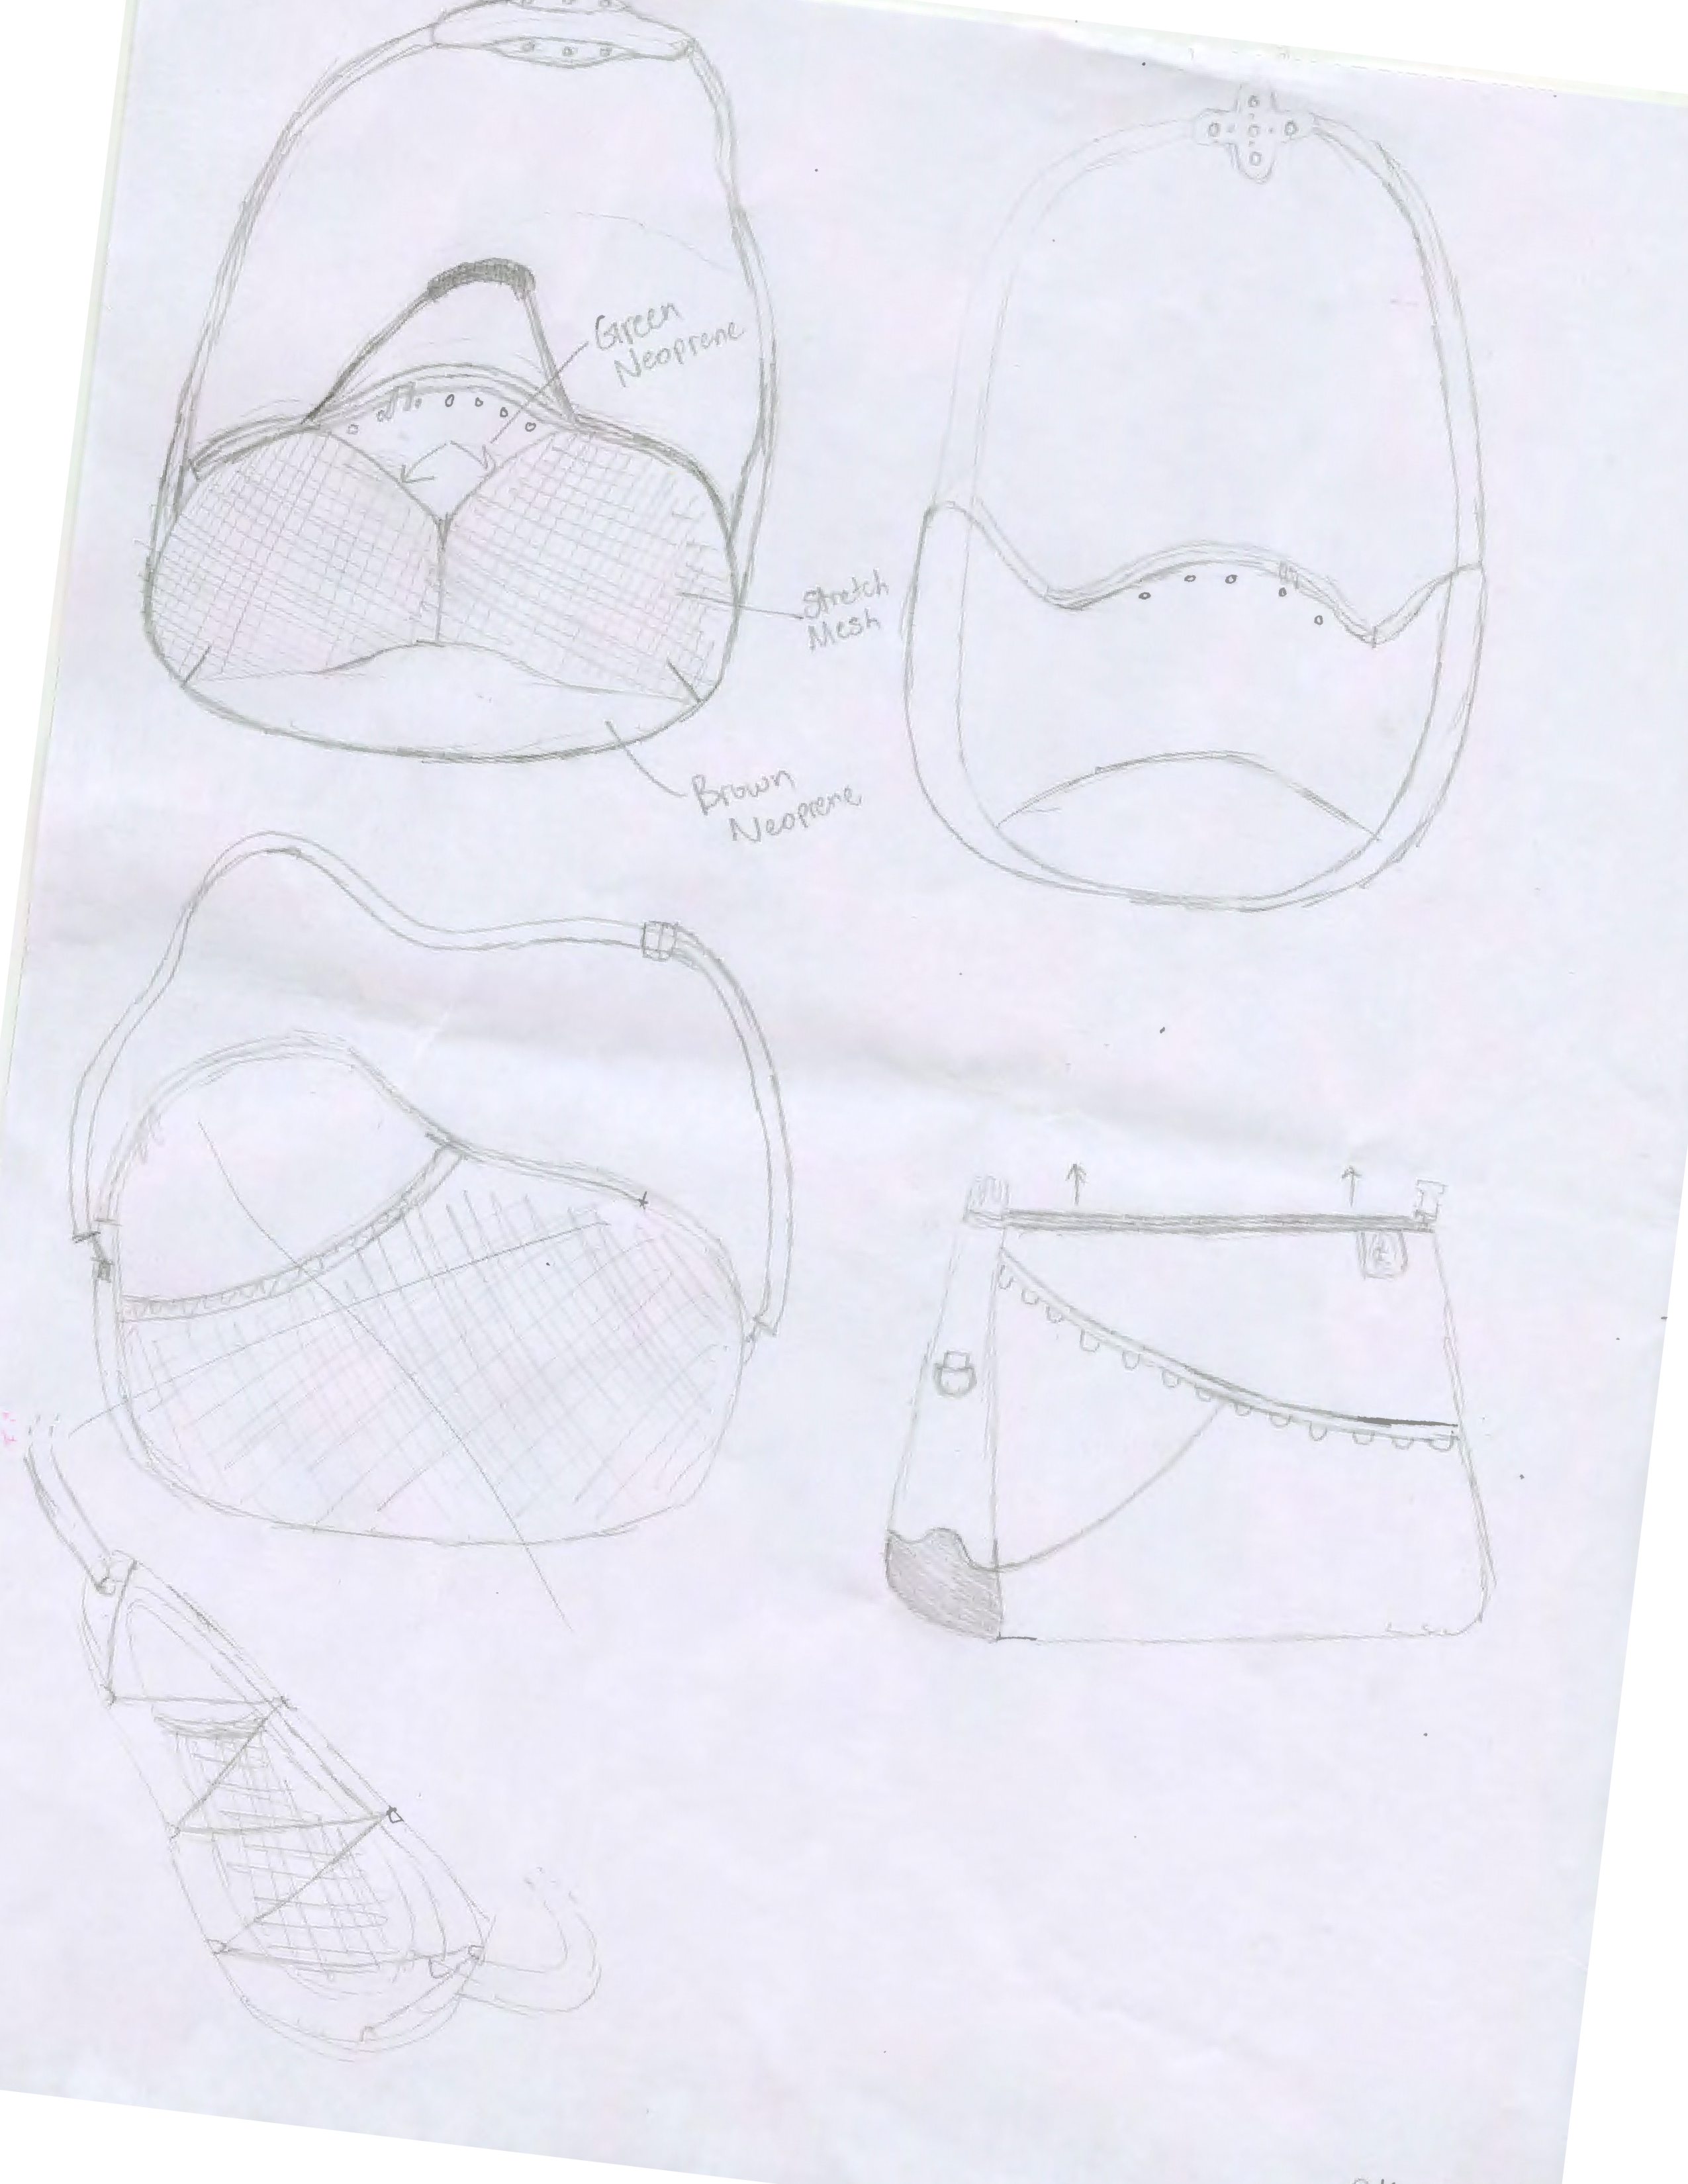 Green
Neoprene
Stretch
Mesh
Brown
Neoprene